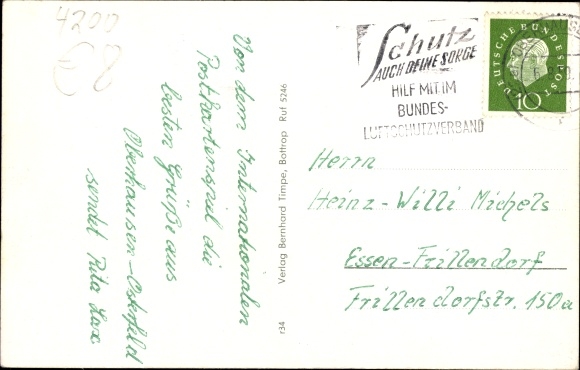 4200
€8
Von dem Internationalen
Postkartenspiel die
besten Grüße aus
Oberhausen-Osterfeld
sendet Rita Lax
Verlag Bernhard Timpe, Bottrop Ruf 5246
r34
Schutz
AUCH DEINE SORGE
HILF MIT IM
BUNDES-
LUFTSCHUTZVERBAND
DEUTSCHE BUNDESPOST
10
Herrn
Heinz-Willi Michels
Essen-Frillendorf
Frillendorfstr. 150a